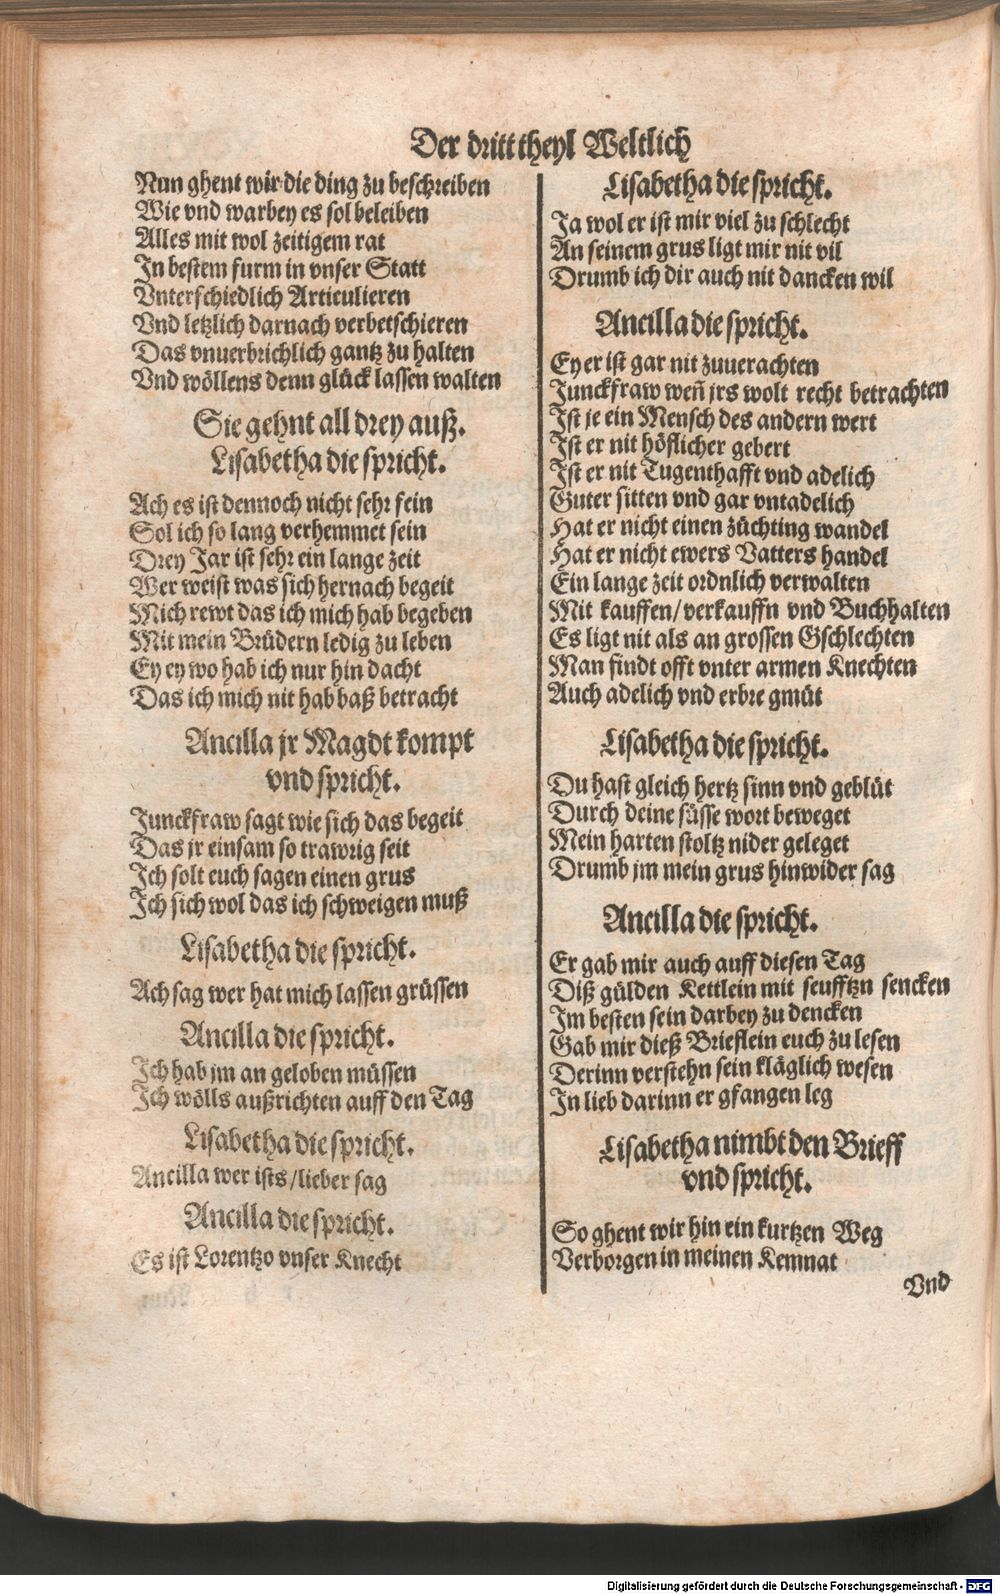 Der dritt theyl Weltlich
Nun ghent wir die ding zu beschreiben
Wie vnd warbey es sol beleiben
Alles mit wol zeitigem rat
In bestem furm in vnser Statt
Vnterschiedlich Articulieren
Vnd letzlich darnach verbetschieren
Das vnuerbrichlich gantz zu halten
Vnd wöllens denn glück lassen walten
Sie gehnt all drey auß.
Lisabetha die spricht.
Ach es ist dennoch nicht sehr fein
Sol ich so lang verhemmet sein
Drey Jar ist sehr ein lange zeit
Wer weist was sich hernach begeit
Mich rewt das ich mich hab begeben
Mit mein Brüdern ledig zu leben
Ey ey wo hab ich nur hin dacht
Das ich mich nit hab baß betracht
Ancilla jr Magdt kompt
vnd spricht.
Junckfraw sagt wie sich das begeit
Das jr einsam so trawrig seit
Ich solt euch sagen einen grus
Ich sich wol das ich schweigen muß
Lisabetha die spricht.
Ach sag wer hat mich lassen grüssen
Ancilla die spricht.
Ich hab jm an geloben müssen
Ich wölls außrichten auff den Tag
Lisabetha die spricht.
Ancilla wer ists/lieber sag
Ancilla die spricht.
Es ist Lorentzo vnser Knecht
Lisabetha die spricht.
Ja wol er ist mir viel zu schlecht
An seinem grus ligt mir nit vil
Drumb ich dir auch nit dancken wil
Ancilla die spricht.
Ey er ist gar nit zuuerachten
Junckfraw weñ jrs wolt recht betrachten
Ist je ein Mensch des andern wert
Ist er nit höflicher gebert
Ist er nit Tugenthafft vnd adelich
Guter sitten vnd gar vntadelich
Hat er nicht einen züchting wandel
Hat er nicht ewers Vatters handel
Ein lange zeit ordnlich verwalten
Mit kauffen/verkauffn vnd Buchhalten
Es ligt nit als an grossen Gschlechten
Man findt offt vnter armen Knechten
Auch adelich vnd erbre gmüt
Lisabetha die spricht.
Du hast gleich hertz sinn vnd geblüt
Durch deine süsse wort beweget
Mein harten stoltz nider geleget
Drumb jm mein grus hinwider sag
Ancilla die spricht.
Er gab mir auch auff diesen Tag
Diß gülden Kettlein mit seufftzn sencken
Im besten sein darbey zu dencken
Gab mir dieß Brieflein euch zu lesen
Derinn verstehn sein kläglich wesen
In lieb darinn er gfangen leg
Lisabetha nimbt den Brieff
vnd spricht.
So ghent wir hin ein kurtzen Weg
Verborgen in meinen Kemnat
Vnd
Digitalisierung gefördert durch die Deutsche Forschungsgemeinschaft - DFG